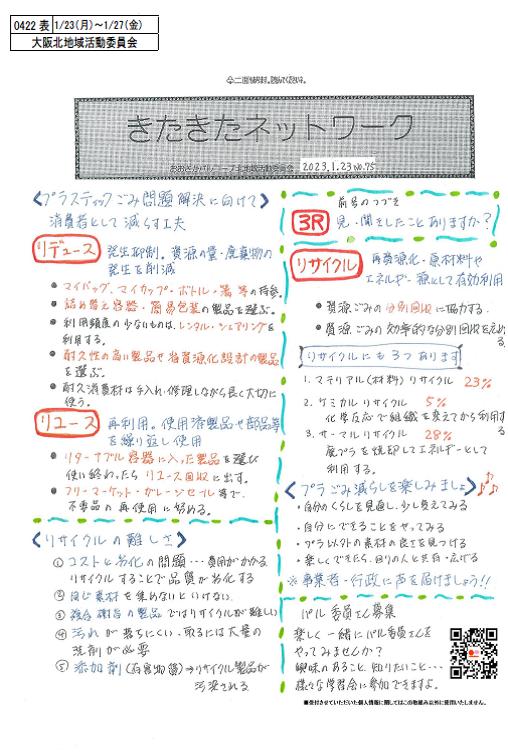 0422 表 1/23(月)～1/27(金)
大阪北地域活動委員会
きたきたネットワーク
おおさかパルコープ北地域活動委員会 2023.1.23 No.75
〈プラスティックごみ問題解決に向けて〉
消費者として減らす工夫
リデュース 発生抑制。資源の量・廃棄物の
発生を削減
●マイバッグ、マイカップ・ボトル・箸 等の持参。
●詰め替え容器・簡易包装の製品を選ぶ。
●利用頻度の少ないものは、レンタル・シェアリングを
利用する。
●耐久性の高い製品や省資源化設計の製品
を選ぶ。
●耐久消費材は手入れ・修理しながら長く大切に
使う。
リユース 再利用。使用済製品や部品等
を繰り返し使用
●リターナブル容器に入った製品を選び
使い終わったら リユース回収に出す。
●フリーマーケット・ガレージセール等で、
不要品の再使用に努める。
〈リサイクルの難しさ〉
①コストと劣化の問題…費用がかかる
リサイクルすることで品質が劣化する
②同じ素材を集めないといけない
③複合 混合の製品ではリサイクルが難しい
④汚れが落ちにくい、取るには大量の
洗剤が必要
⑤添加剤(有害物質)→リサイクル製品が
汚染される
前号のつづき
3R 見・聞きしたことありますか?
リサイクル 再資源化・原材料や
エネルギー源として有効利用
●資源ごみの分別回収に協力する。
●資源ごみの効率的な分別回収を広める
リサイクルにも3つあります
1. マテリアル(材料)リサイクル 23%
2. ケミカルリサイクル 5%
化学反応で組織を変えてから利用する
3. サーマルリサイクル 28%
廃プラを焼却してエネルギーとして
利用する。
〈プラごみ減らしを楽しみましょ〉
・自分のくらしを見直し、少し変えてみる
・自分にできることをやってみる
・プラ以外の素材の良さを見つける
・楽しくできたら、回りの人と共有・広げる
※事業者・行政に声を届けましょう!!
パル委員さん募集
楽しく一緒にパル委員さんを
やってみませんか?
興味のあること、知りたいこと…
様々な学習会に参加できますよ。
■受付させていただいた個人情報に関してはこの取組み以外に使用いたしません。